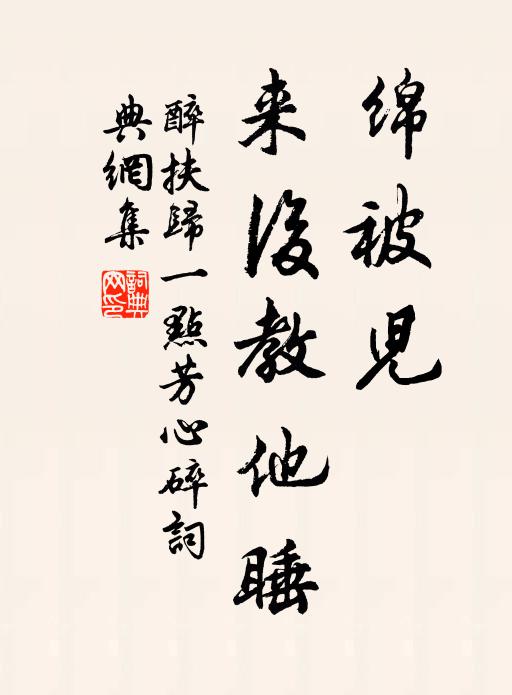 绵被児
来後教他睡
醉扶歸一點芳心碎詞
典網集
詞典网印